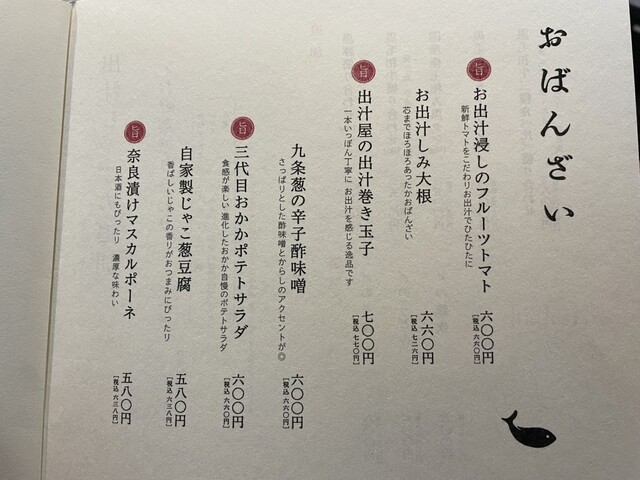 おばんざい
旨
お出汁浸しのフルーツトマト
新鮮トマトをこだわりお出汁でひたひたに
六〇〇円
[税込 六六〇円]
お出汁しみ大根
芯までほろほろあったかおばんざい
六六〇円
[税込 七二六円]
旨
出汁屋の出汁巻き玉子
一本いっぽん丁寧に お出汁を感じる逸品です
七〇〇円
[税込 七七〇円]
九条葱の辛子酢味噌
さっぱりとした酢味噌とからしのアクセントが◎
六〇〇円
[税込 六六〇円]
旨
三代目おかかポテトサラダ
食感が楽しい 進化したおかか自慢のポテトサラダ
六〇〇円
[税込 六六〇円]
自家製じゃこ葱豆腐
香ばしいじゃこの香りがおつまみにぴったり
五八〇円
[税込 六三八円]
旨
奈良漬けマスカルポーネ
日本酒にもぴったり 濃厚な味わい
五八〇円
[税込 六三八円]